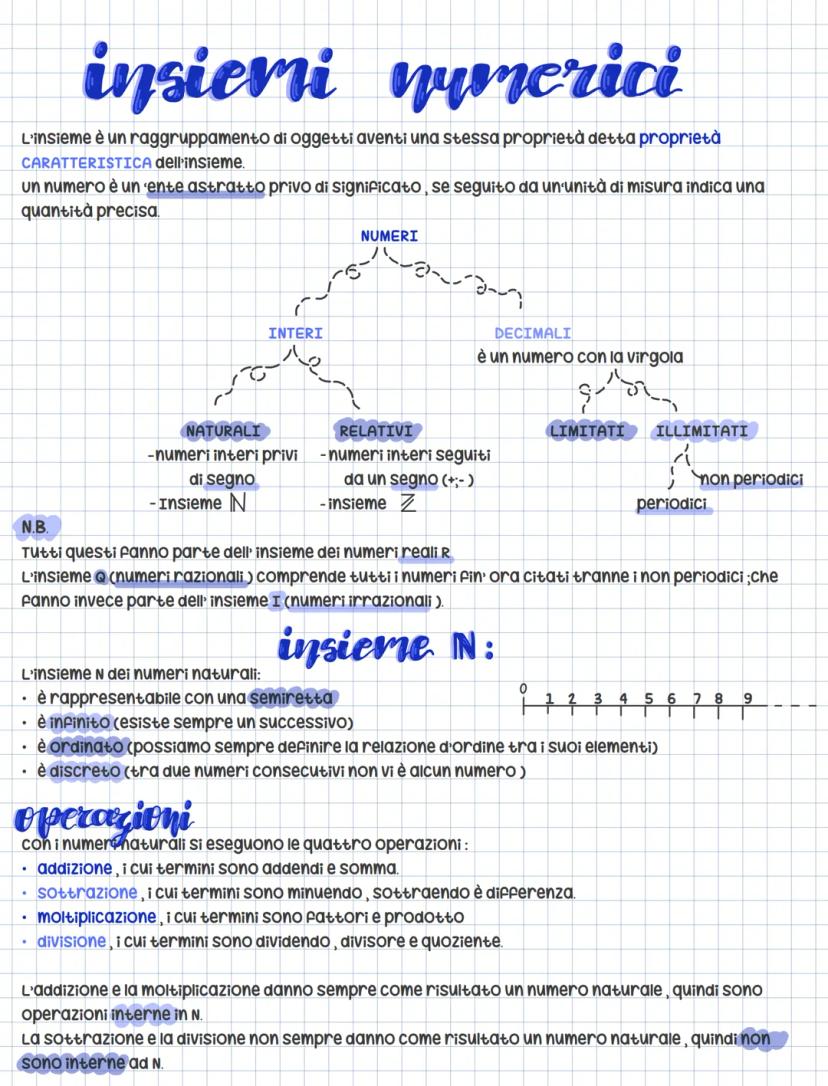 insiemi numerici
L'insieme è un raggruppamento di oggetti aventi una stessa proprietà detta proprietà
CARATTERISTICA dell'insieme.
un numero è un 'ente astratto privo di significato , se seguito da un'unità di misura indica una
quantità precisa.
NUMERI
INTERI DECIMALI
è un numero con la virgola
NATURALI RELATIVI LIMITATI ILLIMITATI
-numeri interi privi -numeri interi seguiti
di segno da un segno (+;-) non periodici
-Insieme ℕ -insieme ℤ periodici
N.B.
Tutti questi fanno parte dell' insieme dei numeri reali R
L'insieme Q (numeri razionali ) comprende tutti i numeri fin' ora citati tranne i non periodici ;che
fanno invece parte dell' insieme I (numeri irrazionali ).
insieme ℕ :
L'insieme N dei numeri naturali:
• è rappresentabile con una semiretta
0 1 2 3 4 5 6 7 8 9
• è infinito (esiste sempre un successivo)
• è ordinato (possiamo sempre definire la relazione d'ordine tra i suoi elementi)
• è discreto (tra due numeri consecutivi non vi è alcun numero )
operazioni
con i numeri naturali si eseguono le quattro operazioni :
• addizione , i cui termini sono addendi e somma.
• sottrazione , i cui termini sono minuendo , sottraendo è differenza.
• moltiplicazione , i cui termini sono fattori e prodotto
• divisione , i cui termini sono dividendo , divisore e quoziente.
L'addizione e la moltiplicazione danno sempre come risultato un numero naturale , quindi sono
operazioni interne in N.
La sottrazione e la divisione non sempre danno come risultato un numero naturale , quindi non
sono interne ad N.